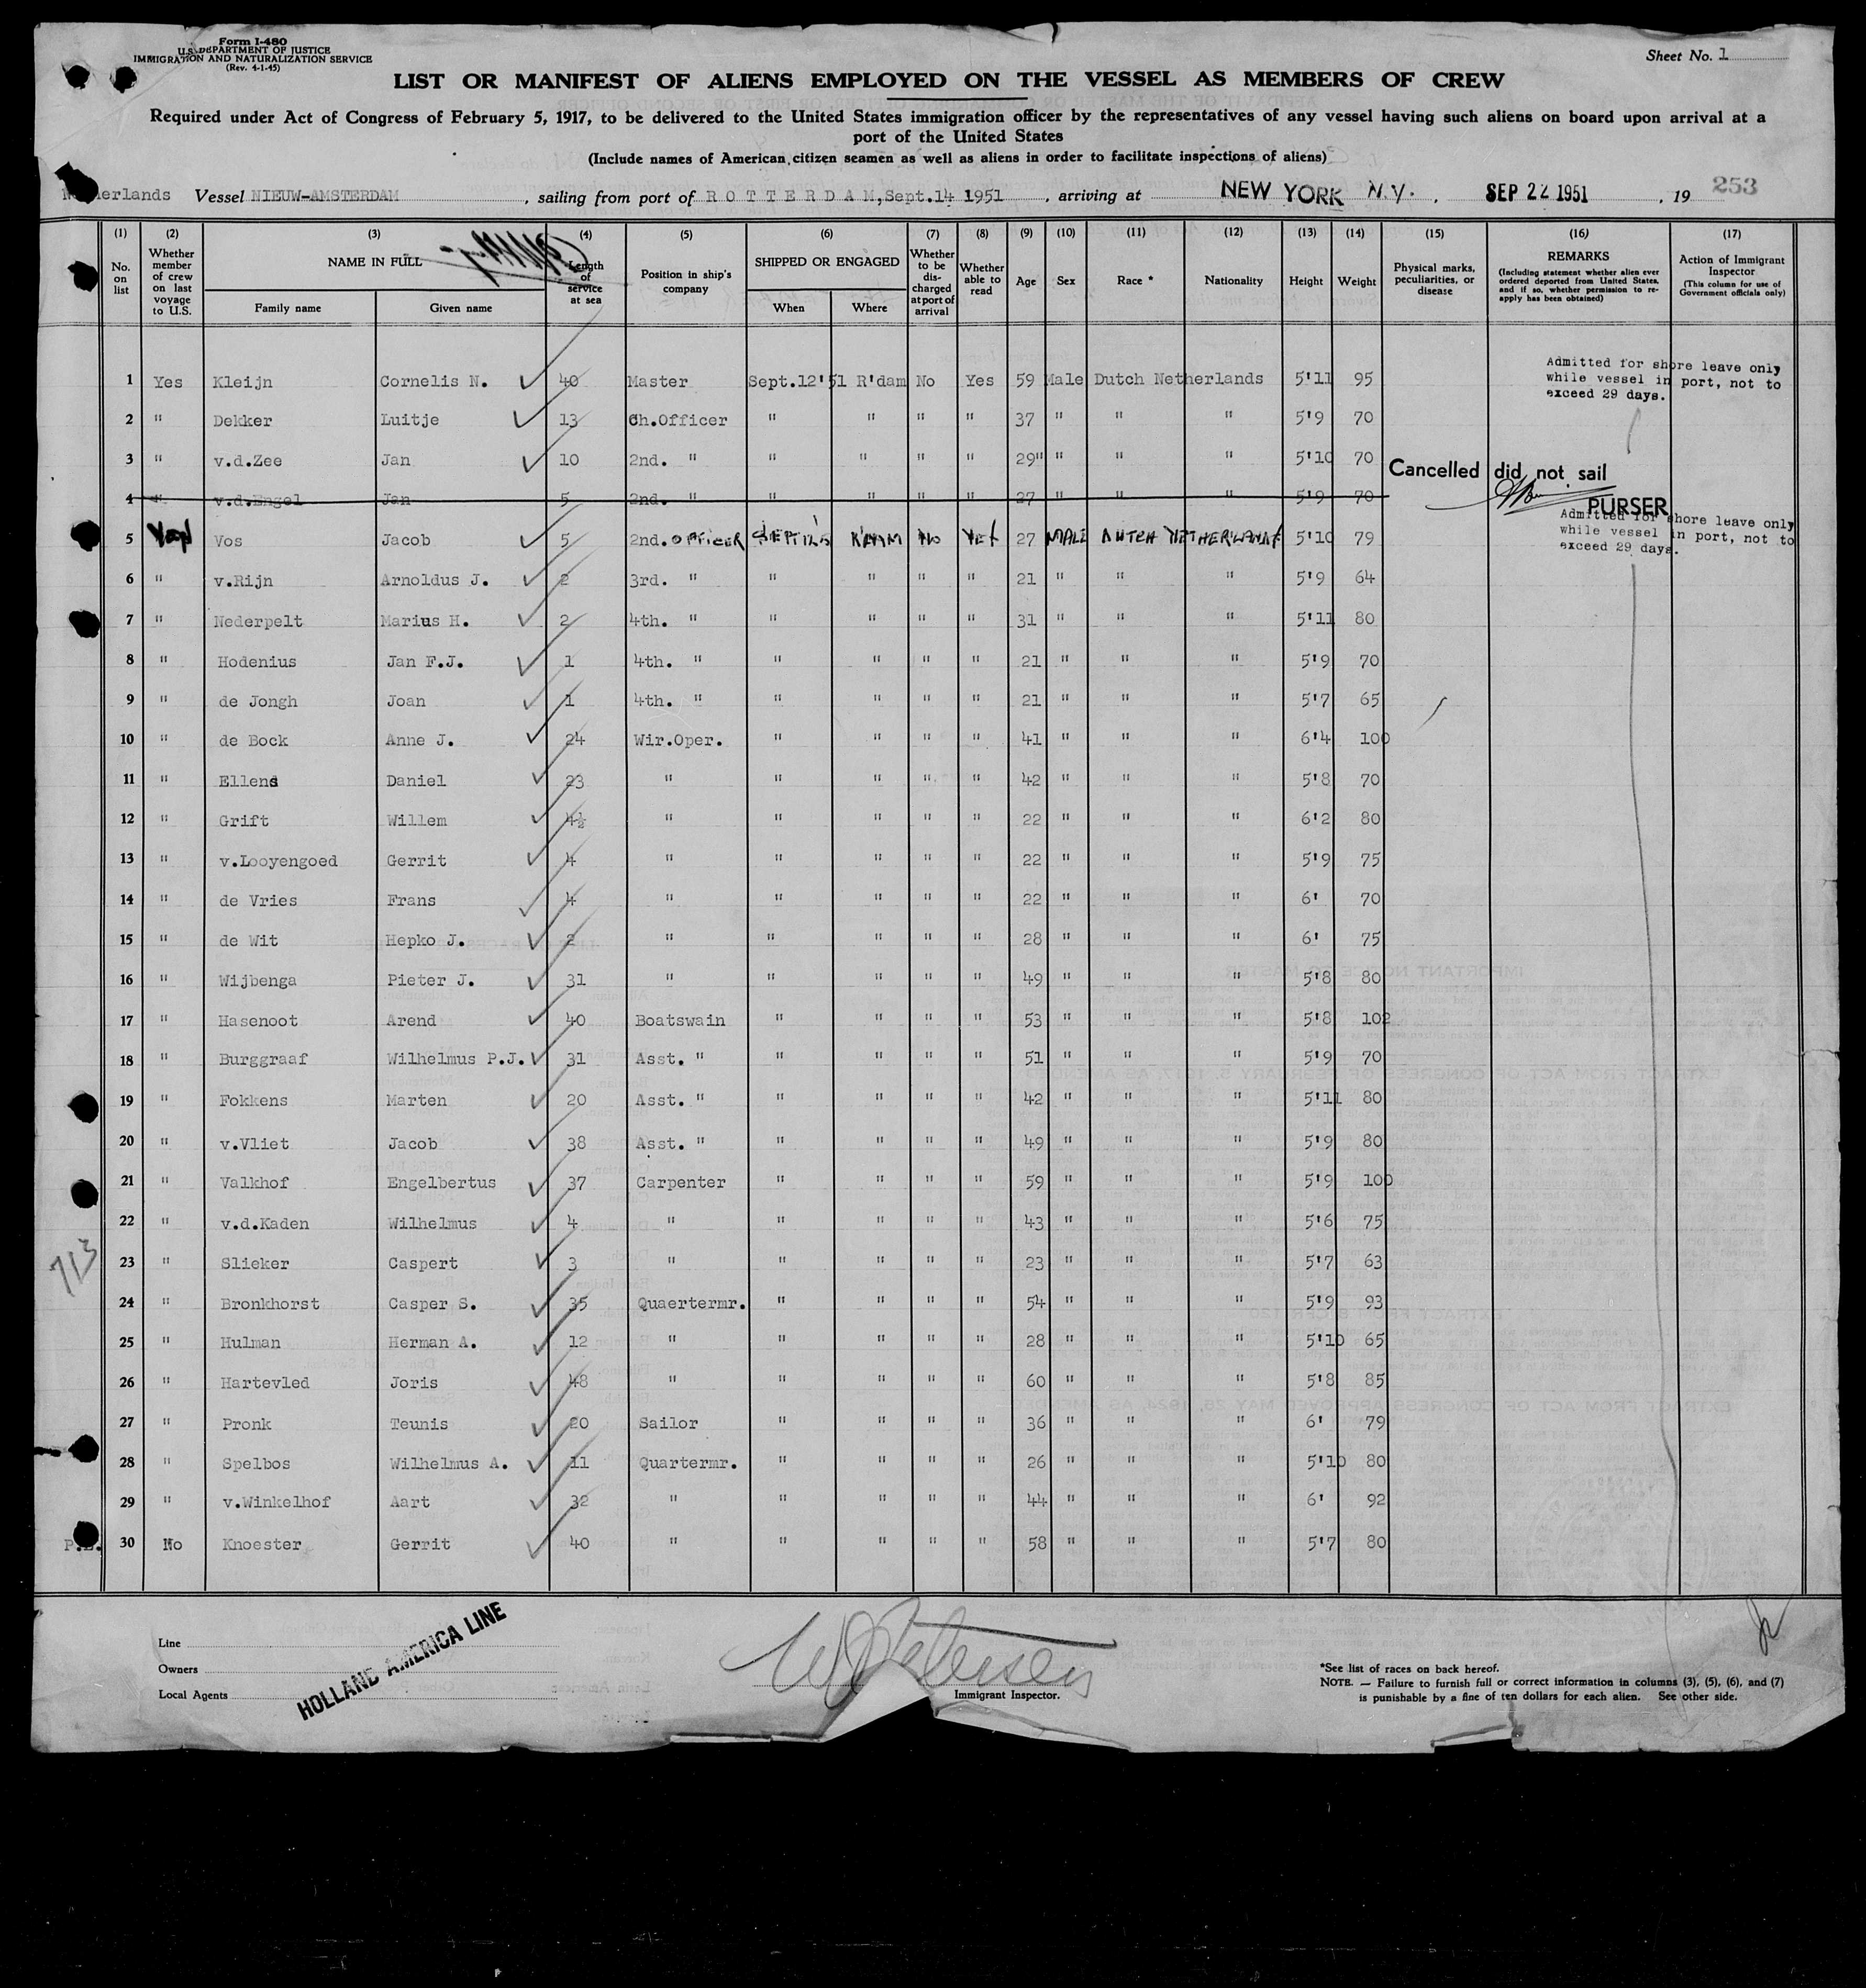 Form I-480
U.S. DEPARTMENT OF JUSTICE
IMMIGRATION AND NATURALIZATION SERVICE
(Rev. 4-1-45)
Sheet No. 1
LIST OR MANIFEST OF ALIENS EMPLOYED ON THE VESSEL AS MEMBERS OF CREW
Required under Act of Congress of February 5, 1917, to be delivered to the United States immigration officer by the representatives of any vessel having such aliens on board upon arrival at a
port of the United States
(Include names of American citizen seamen as well as aliens in order to facilitate inspections of aliens)
Netherlands Vessel NIEUW-AMSTERDAM, sailing from port of R O T T E R D A M, Sept.14 1951, arriving at NEW YORK N.Y., SEP 22 1951, 19 253
(1) No. on list
(2) Whether member of crew on last voyage to U.S.
(3) NAME IN FULL Family name Given name
(4) Length of service at sea
(5) Position in ship's company
(6) SHIPPED OR ENGAGED When Where
(7) Whether to be discharged at port of arrival
(8) Whether able to read
(9) Age
(10) Sex
(11) Race *
(12) Nationality
(13) Height
(14) Weight
(15) Physical marks, peculiarities, or disease
(16) REMARKS (Including statement whether alien ever ordered deported from United States, and if so, whether permission to re-apply has been obtained)
(17) Action of Immigrant Inspector (This column for use of Government officials only)
1 Yes Kleijn Cornelis N. 40 Master Sept.12'51 R'dam No Yes 59 Male Dutch Netherlands 5'11 95 Admitted for shore leave only while vessel in port, not to exceed 29 days.
2 " Dekker Luitje 13 Ch.Officer " " " " 37 " " " 5'9 70
3 " v.d.Zee Jan 10 2nd. " " " " " 29" " " " 5'10 70
Cancelled did not sail
4 " v.d.Engel Jan 5 2nd. " " " " " 27 " " " 5'9 70
PURSER
5 Yes Vos Jacob 5 2nd. OFFICER SEPT 12 R'DAM NO YES 27 MALE DUTCH NETHERLANDS 5'10 79 Admitted for shore leave only while vessel in port, not to exceed 29 days.
6 " v.Rijn Arnoldus J. 2 3rd. " " " " " 21 " " " 5'9 64
7 " Nederpelt Marius H. 2 4th. " " " " " 31 " " " 5'11 80
8 " Hodenius Jan F.J. 1 4th. " " " " " 21 " " " 5'9 70
9 " de Jongh Joan 1 4th. " " " " " 21 " " " 5'7 65
10 " de Bock Anne J. 24 Wir.Oper. " " " " 41 " " " 6'4 100
11 " Ellens Daniel 23 " " " " " 42 " " " 5'8 70
12 " Grift Willem 4½ " " " " " 22 " " " 6'2 80
13 " v.Looyengoed Gerrit 4 " " " " " 22 " " " 5'9 75
14 " de Vries Frans 4 " " " " " 22 " " " 6' 70
15 " de Wit Hepko J. 2 " " " " " 28 " " " 6' 75
16 " Wijbenga Pieter J. 31 " " " " " 49 " " " 5'8 80
17 " Hasenoot Arend 40 Boatswain " " " " 53 " " " 5'8 102
18 " Burggraaf Wilhelmus P.J. 31 Asst. " " " " " 51 " " " 5'9 70
19 " Fokkens Marten 20 Asst. " " " " " 42 " " " 5'11 80
20 " v.Vliet Jacob 38 Asst. " " " " " 49 " " " 5'9 80
21 " Valkhof Engelbertus 37 Carpenter " " " " 59 " " " 5'9 100
22 " v.d.Kaden Wilhelmus 4 " " " " " 43 " " " 5'6 75
23 " Slieker Caspert 3 " " " " " 23 " " " 5'7 63
713
24 " Bronkhorst Casper S. 35 Quaertermr. " " " " 54 " " " 5'9 93
25 " Hulman Herman A. 12 " " " " " 28 " " " 5'10 65
26 " Hartevled Joris 48 " " " " " 60 " " " 5'8 85
27 " Pronk Teunis 20 Sailor " " " " 36 " " " 6' 79
28 " Spelbos Wilhelmus A. 11 Quartermr. " " " " 26 " " " 5'10 80
29 " v.Winkelhof Aart 32 " " " " " 44 " " " 6' 92
30 No Knoester Gerrit 40 " " " " " 58 " " " 5'7 80
Line
Owners
Local Agents
HOLLAND AMERICA LINE
Immigrant Inspector.
*See list of races on back hereof.
NOTE. — Failure to furnish full or correct information in columns (3), (5), (6), and (7)
is punishable by a fine of ten dollars for each alien. See other side.